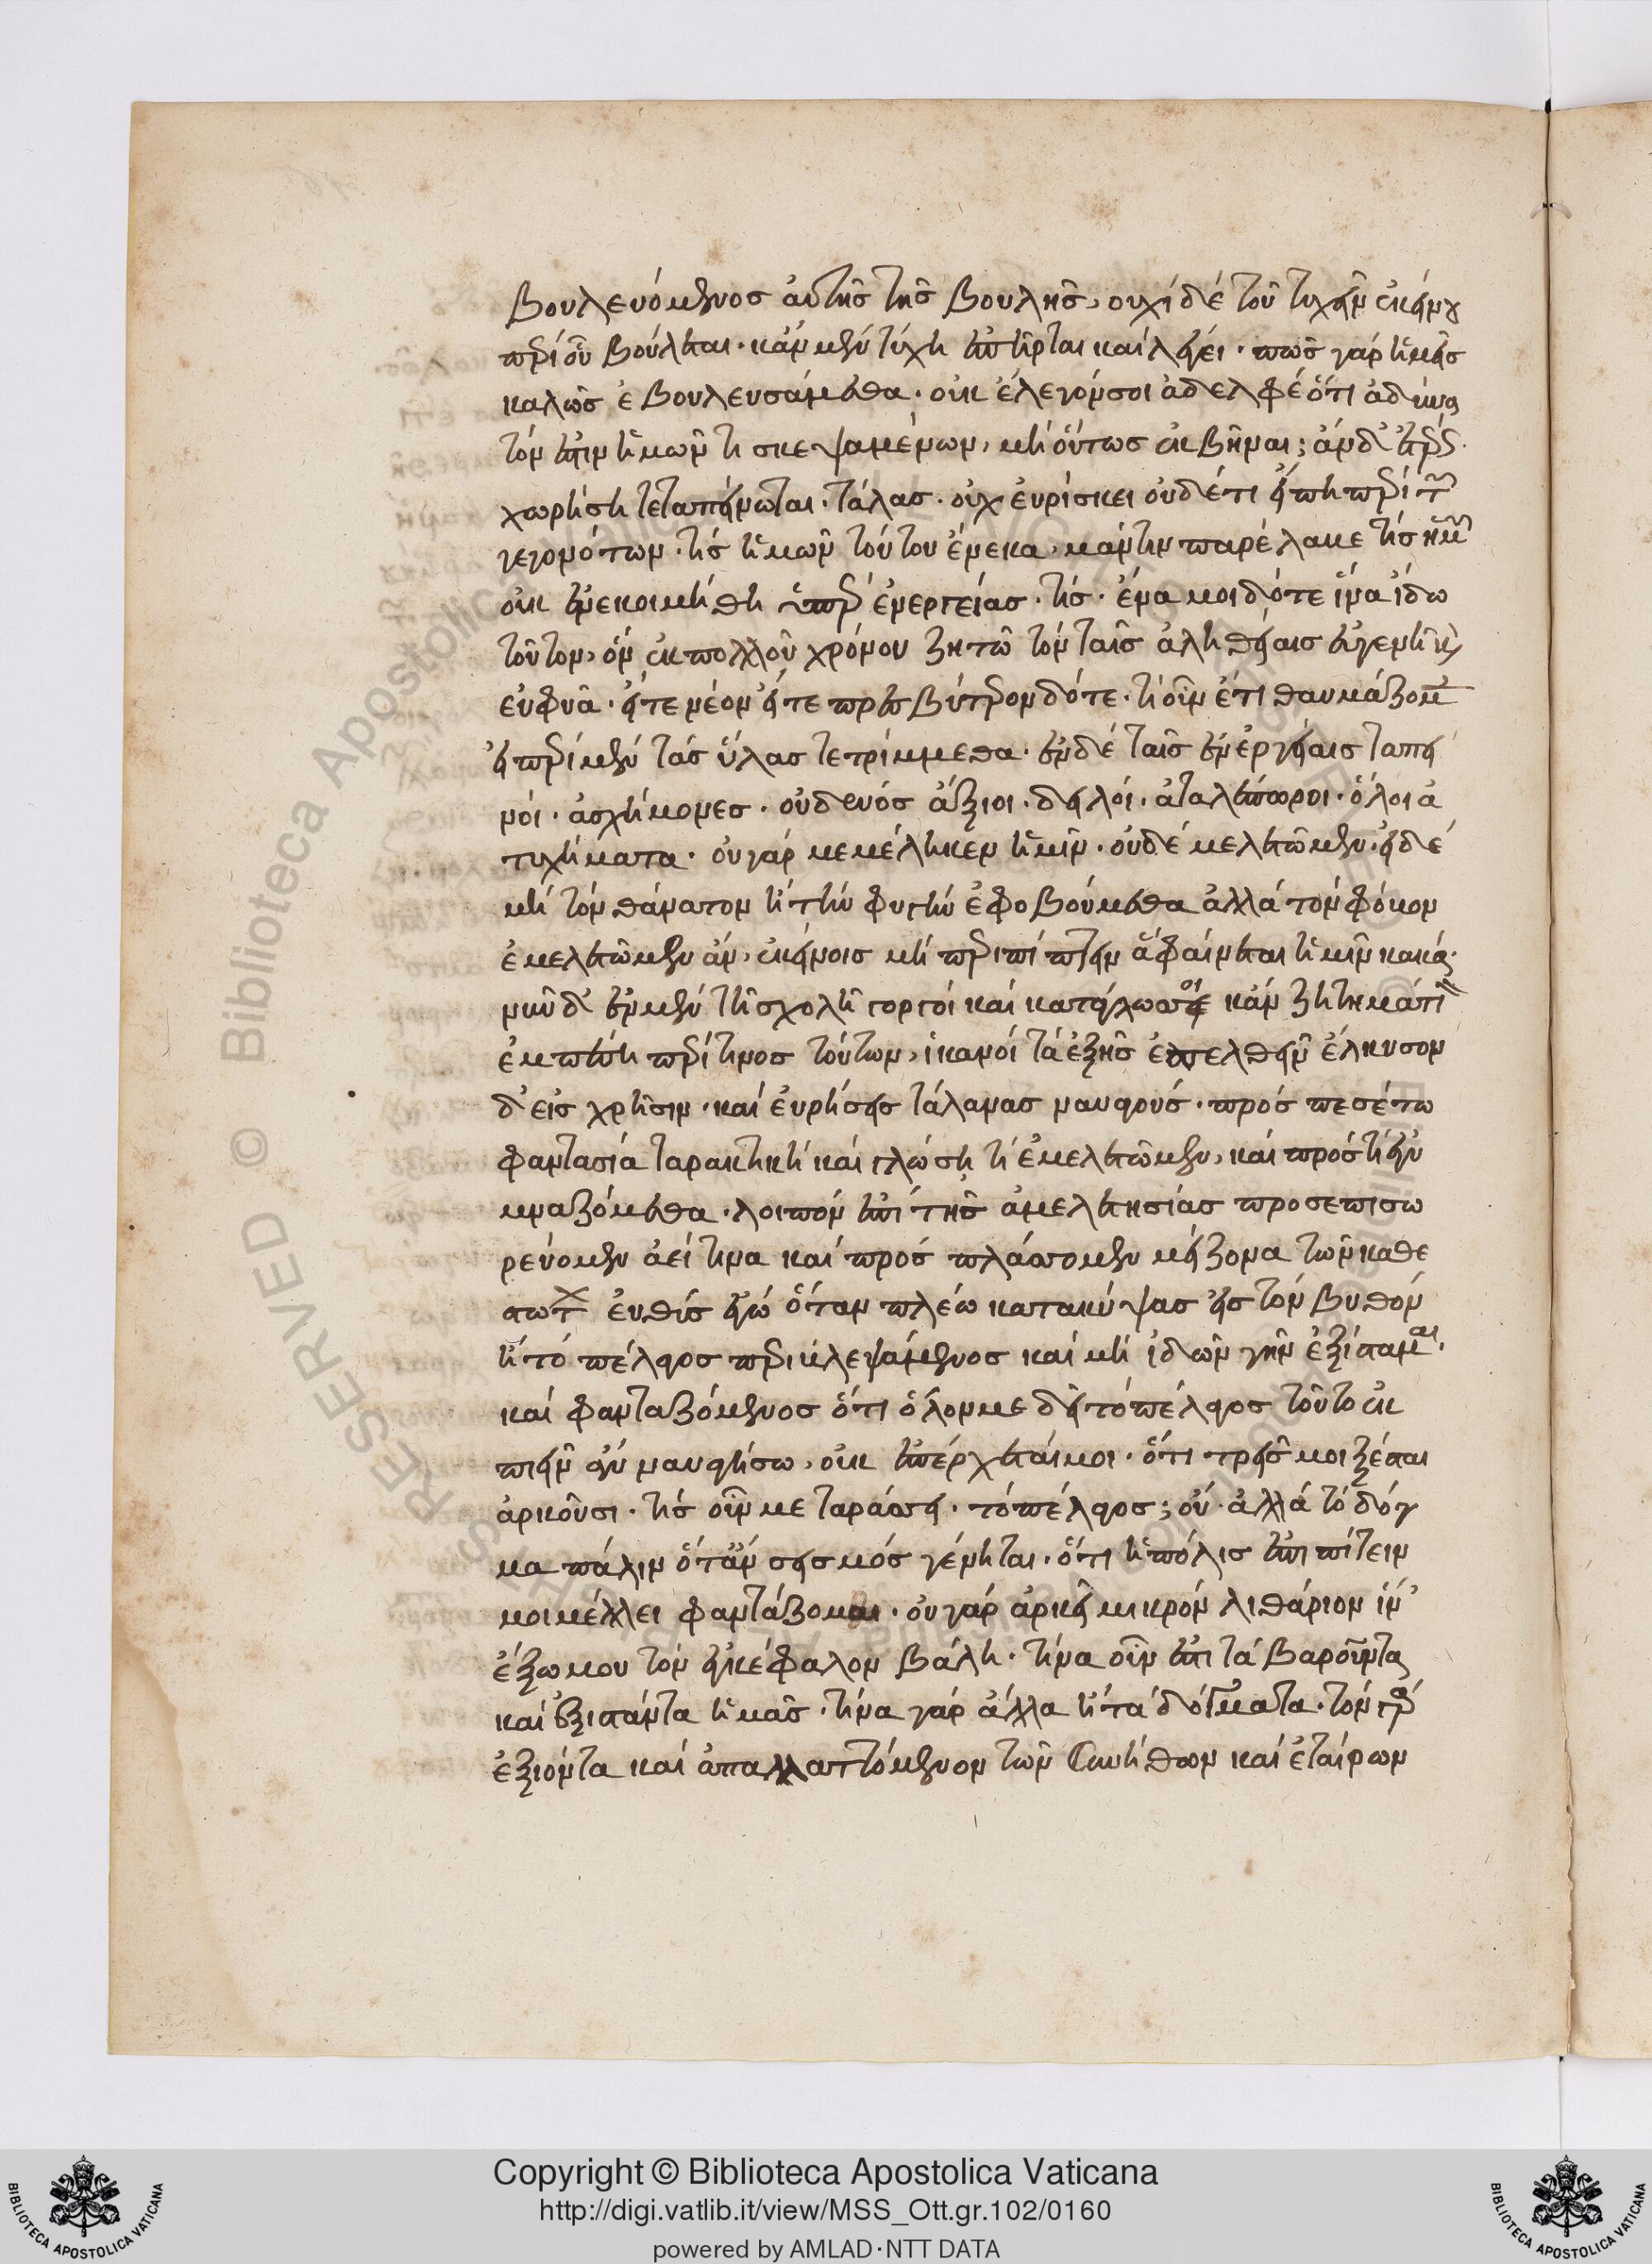 βουλευόμενος αὐτῆς τῆς βουλῆς, οὐχὶ δὲ τοῦ τυχεῖν ἐκείνου
περὶ οὗ βούλεται· κἂν μὲν τύχη ἐπῆρται καὶ λέγει· πῶς γὰρ ἡμεῖς
καλῶς ἐβουλευσάμεθα· οὐκ ἔλεγόν σοι ἀδελφέ ὅτι ἀδύνα
τόν ἐστιν ἡμῶν τὶ σκεψαμένων, μὴ οὕτως ἐκβῆναι; ἀν δ' ἑτέρως
χωρήση τεταπείνωται· τάλας· οὐχ εὑρίσκει οὐδέ τι εἴπη περὶ τῶν
γεγονότων· τίς ἡμῶν τούτου ἕνεκα, μάντιν παρέλαβε τίς ἡμῶν
οὐκ ἐνεκοιμήθη ὑπὲρ ἐνεργείας· τίς· ἕνα μοι δότε ἵνα ἴδω
τοῦτον, ὃν ἐκ πολλοῦ χρόνου ζητῶ τὸν ταῖς ἀληθείαις εὐγενῆ καὶ
εὐφυᾶ· εἴτε νέον εἴτε πρεσβύτερον δότε· τί οὖν ἔτι θαυμάζομεν
εἰ περὶ μὲν τὰς ὕλας τετρίμμεθα· ἐν δὲ ταῖς ἐνεργείαις ταπει
νοί· ἀσχήμονες· οὐδενός ἄξιοι· δειλοί· ἀταλαίπωροι· ὅλοι ἀ
τυχήματα· οὐ γὰρ μεμέληκεν ἡμῖν· οὐδὲ μελετῶμεν· εἰ δὲ
μὴ τὸν θάνατον ἢ τὴν φυγὴν ἐφοβούμεθα ἀλλὰ τὸν φόβον
ἐμελετῶμεν ἄν, ἐκείνοις μὴ περιπίπτειν ἃ φαίνεται ἡμῖν κακά·
νῦν δ' ἐν μὲν τῆ σχολῆ γοργοί καὶ κατάγλωσσοι κἀν ζητημάτιον
ἐμπέση περί τινος τούτων, ἱκανοί τὰ ἑξῆς ἐπελθεῖν ἕλκυσον
δ' εἰς χρῆσιν· καὶ εὑρήσεις τάλανας ναυαγούς· πρός πεσέτω
φαντασία ταρακτική καὶ γλώση τί ἐμελετῶμεν, καὶ πρός τί ἐγυ
μναζόμεθα· λοιπόν ἐπὶ τῆς ἀμελετησίας προσεπισω
ρεύομεν ἀεί τινα καὶ πρός πλάσσομεν μείζονα τῶν καθε
στώτ εὐθύς ἐγώ ὅταν πλέω κατακύψας εἰς τὸν βυθόν
ἢ τὸ πέλαγος περιβλεψάμενος καὶ μὴ ἰδὼν γῆν ἐξίσταμαι·
καὶ φανταζόμενος ὅτι ὅλον με δεῖ τὸ πέλαγος τοῦτο ἐκ
πιεῖν ἂν ναυαγήσω, οὐκ ἐπέρχεταί μοι· ὅτι τρεῖς μοι ξέσται
ἀρκοῦσι· τίς οὖν με ταράσσει· τὸ πέλαγος; οὔ· ἀλλὰ τὸ δόγ
μα πάλιν ὅτἂν σεισμός γένηται· ὅτι ἡ πόλις ἐπιπίτειν
μοι μέλλει φαντάζομαι· οὐ γὰρ ἀρκεῖ μικρόν λιθάριον ἵν'
ἔξω μου τὸν ἐγκέφαλον βάλη· τίνα οὖν ἐστι τὰ βαροῦντα
καὶ ἐξιστάντα ἡμᾶς· τίνα γὰρ ἄλλα ἢ τὰ δόγματα· τὸν γὰρ
ἐξιόντα καὶ ἀπαλλαττόμενον τῶν συνήθων καὶ ἑταίρων
Copyright © Biblioteca Apostolica Vaticana
http://digi.vatlib.it/view/MSS_Ott.gr.102/0160
powered by AMLAD·NTT DATA